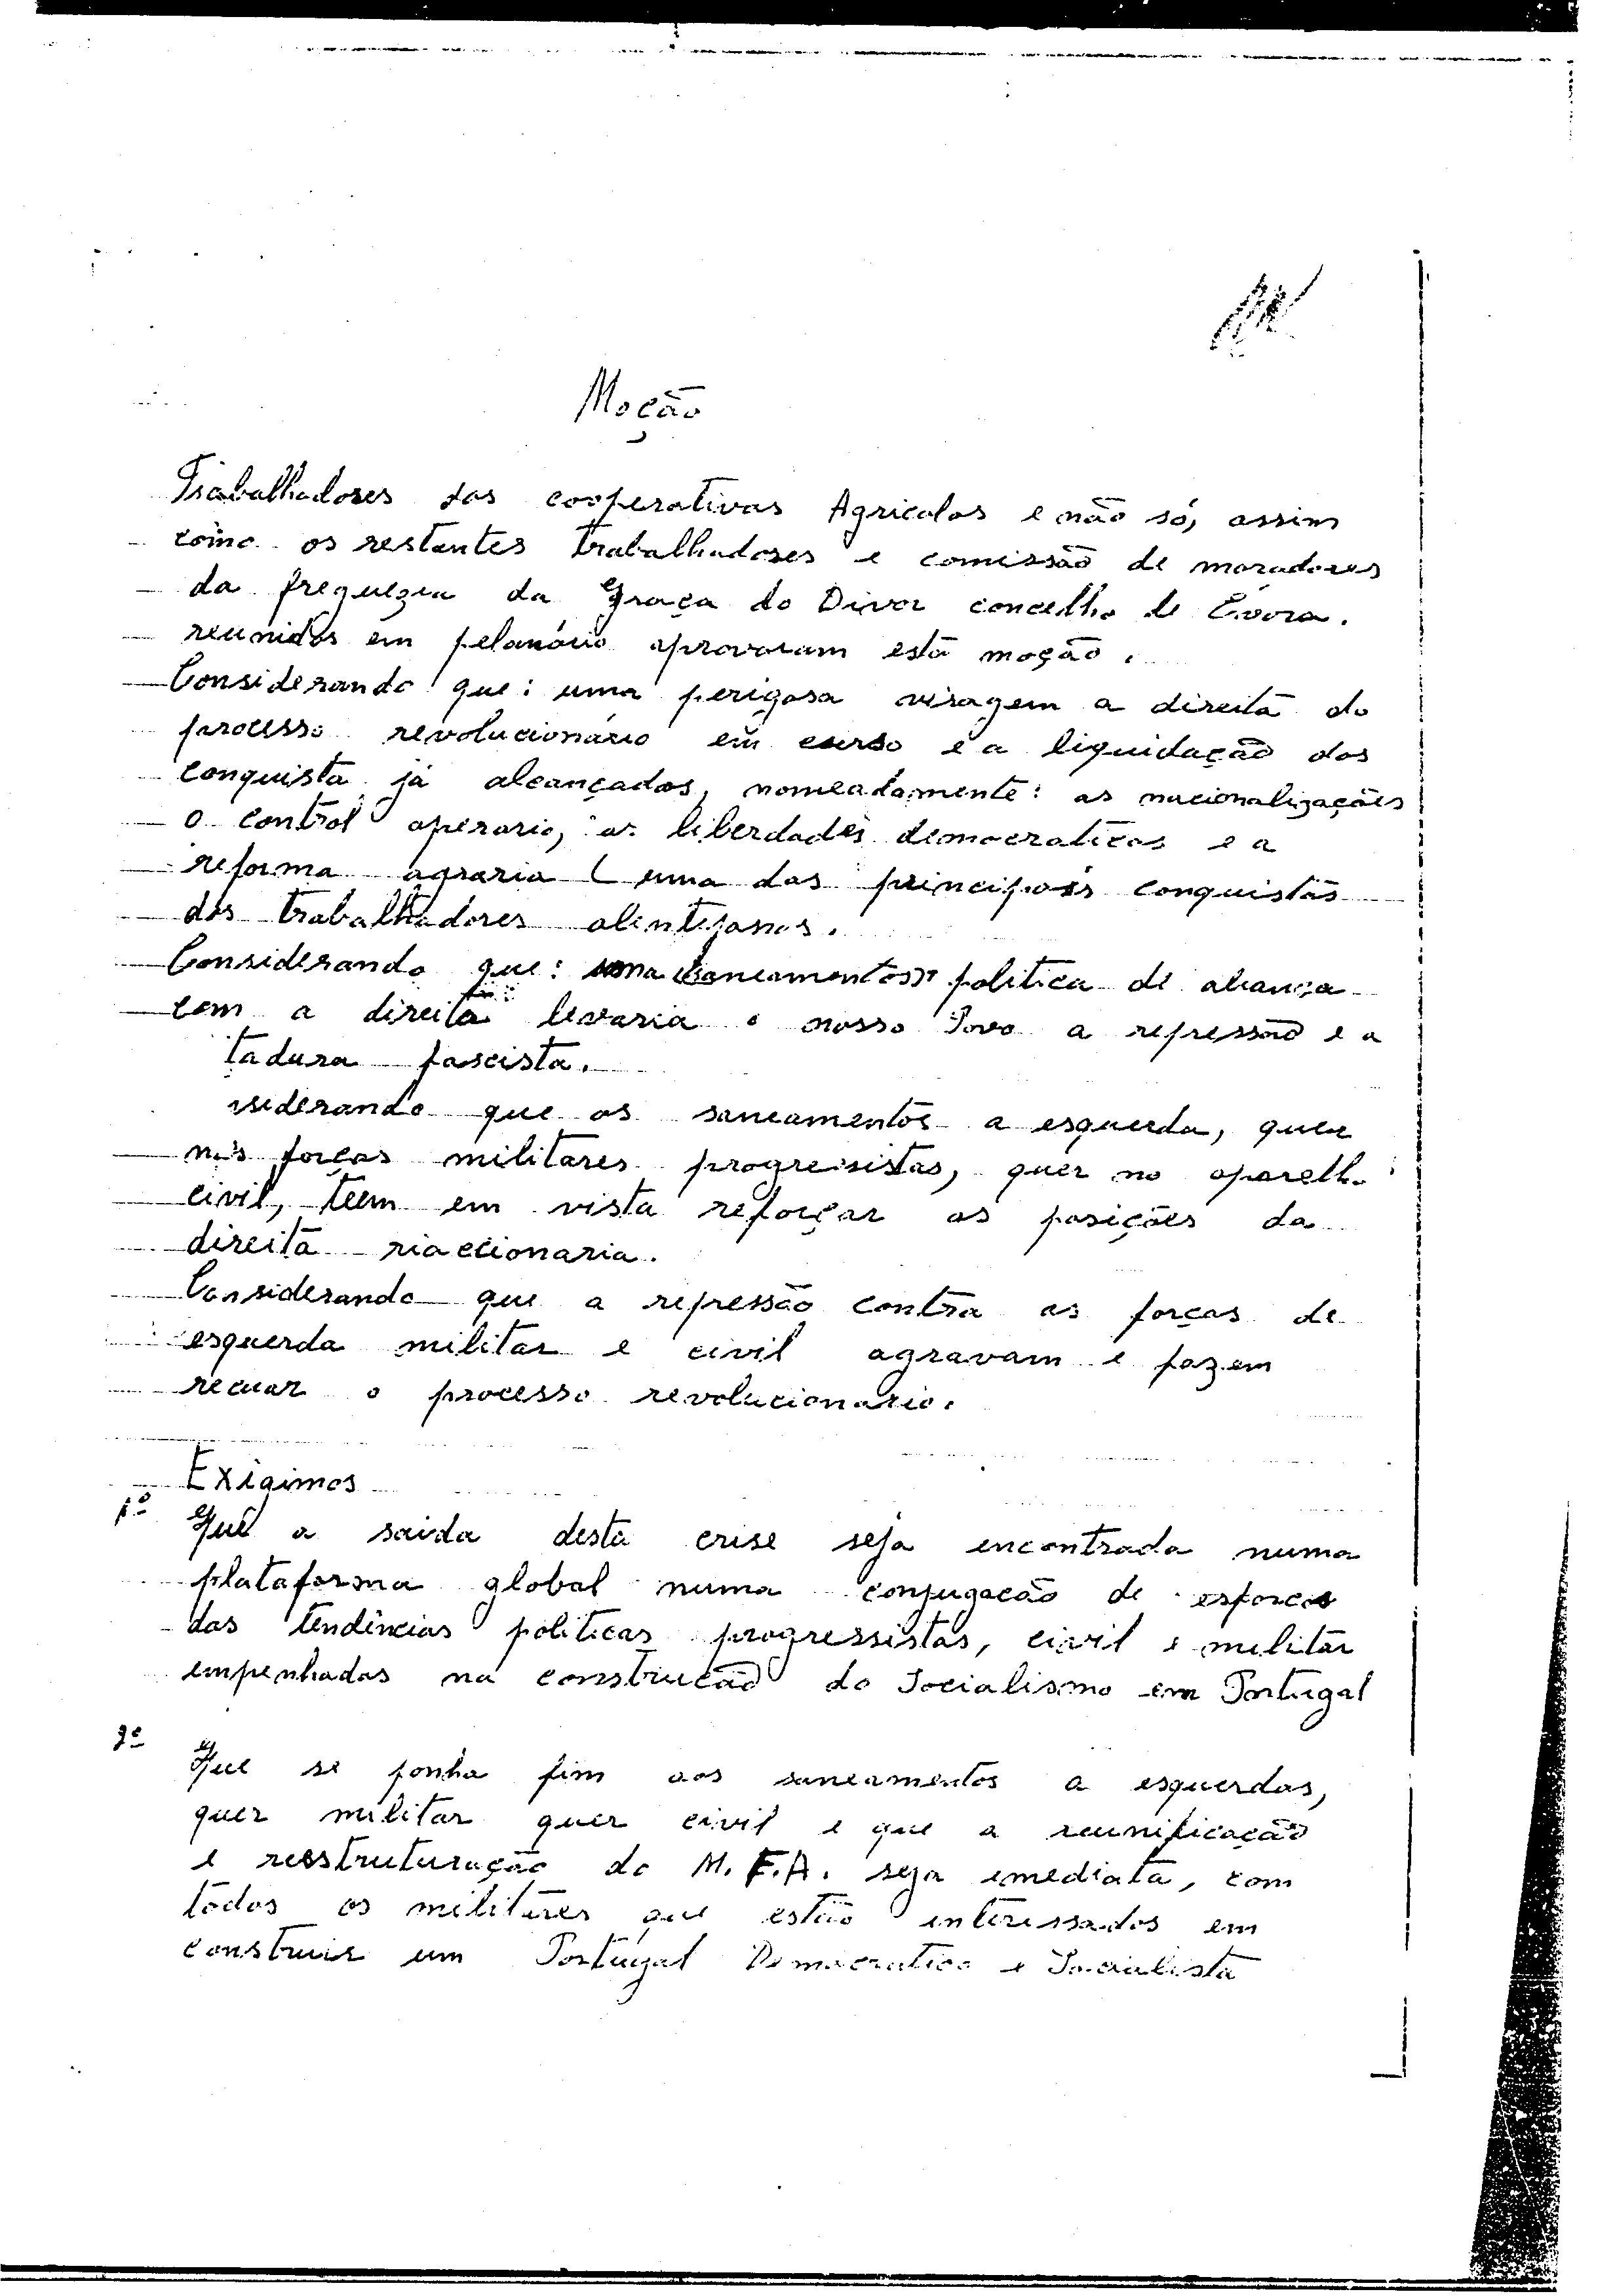 Moção
Trabalhadores das cooperativas Agricolas e não só, assim
como os restantes trabalhadores e comissão de moradores
da freguezia da Graça do Divor concelho de Évora.
reunidos em pelanário aprovaram esta moção.
Considerando que: uma perigosa viragem a direita do
processo revolucionário em curso e a liquidação das
conquista já alcançadas, nomeadamente: as nacionalizações
o control operario, as liberdades democraticas e a
reforma agraria (uma das principais conquistas
dos trabalhadores alentejanos.
Considerando que: uma politica de aliança
com a direita levaria o nosso Povo a repressão e a
tadura fascista.
siderando que os saneamentos a esquerda, quer
nas forças militares progressistas, quer no aparelho
civil, teem em vista reforçar as posições da
direita riaccionaria.
Considerando que a repressão contra as forças de
esquerda militar e civil agravam e fazem
recuar o processo revolucionario.
Exigimos
1º Que a saida desta crise seja encontrada numa
plataforma global numa conjugacão de esforcos
das tendências politicas progressistas, civil e militar
empenhadas na construcão do Socialismo em Portugal
2º Que se ponha fim aos saneamentos a esquerdas,
quer militar quer civil e que a reunificação
e resstruturação do M.F.A. seja emediata, com
todos os militares que estão interissados em
construir um Portugal Democratico e Socialista